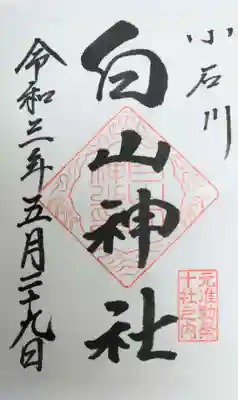 小石川
白山神社
元准勅祭
十社之内
令和三年五月二十九日